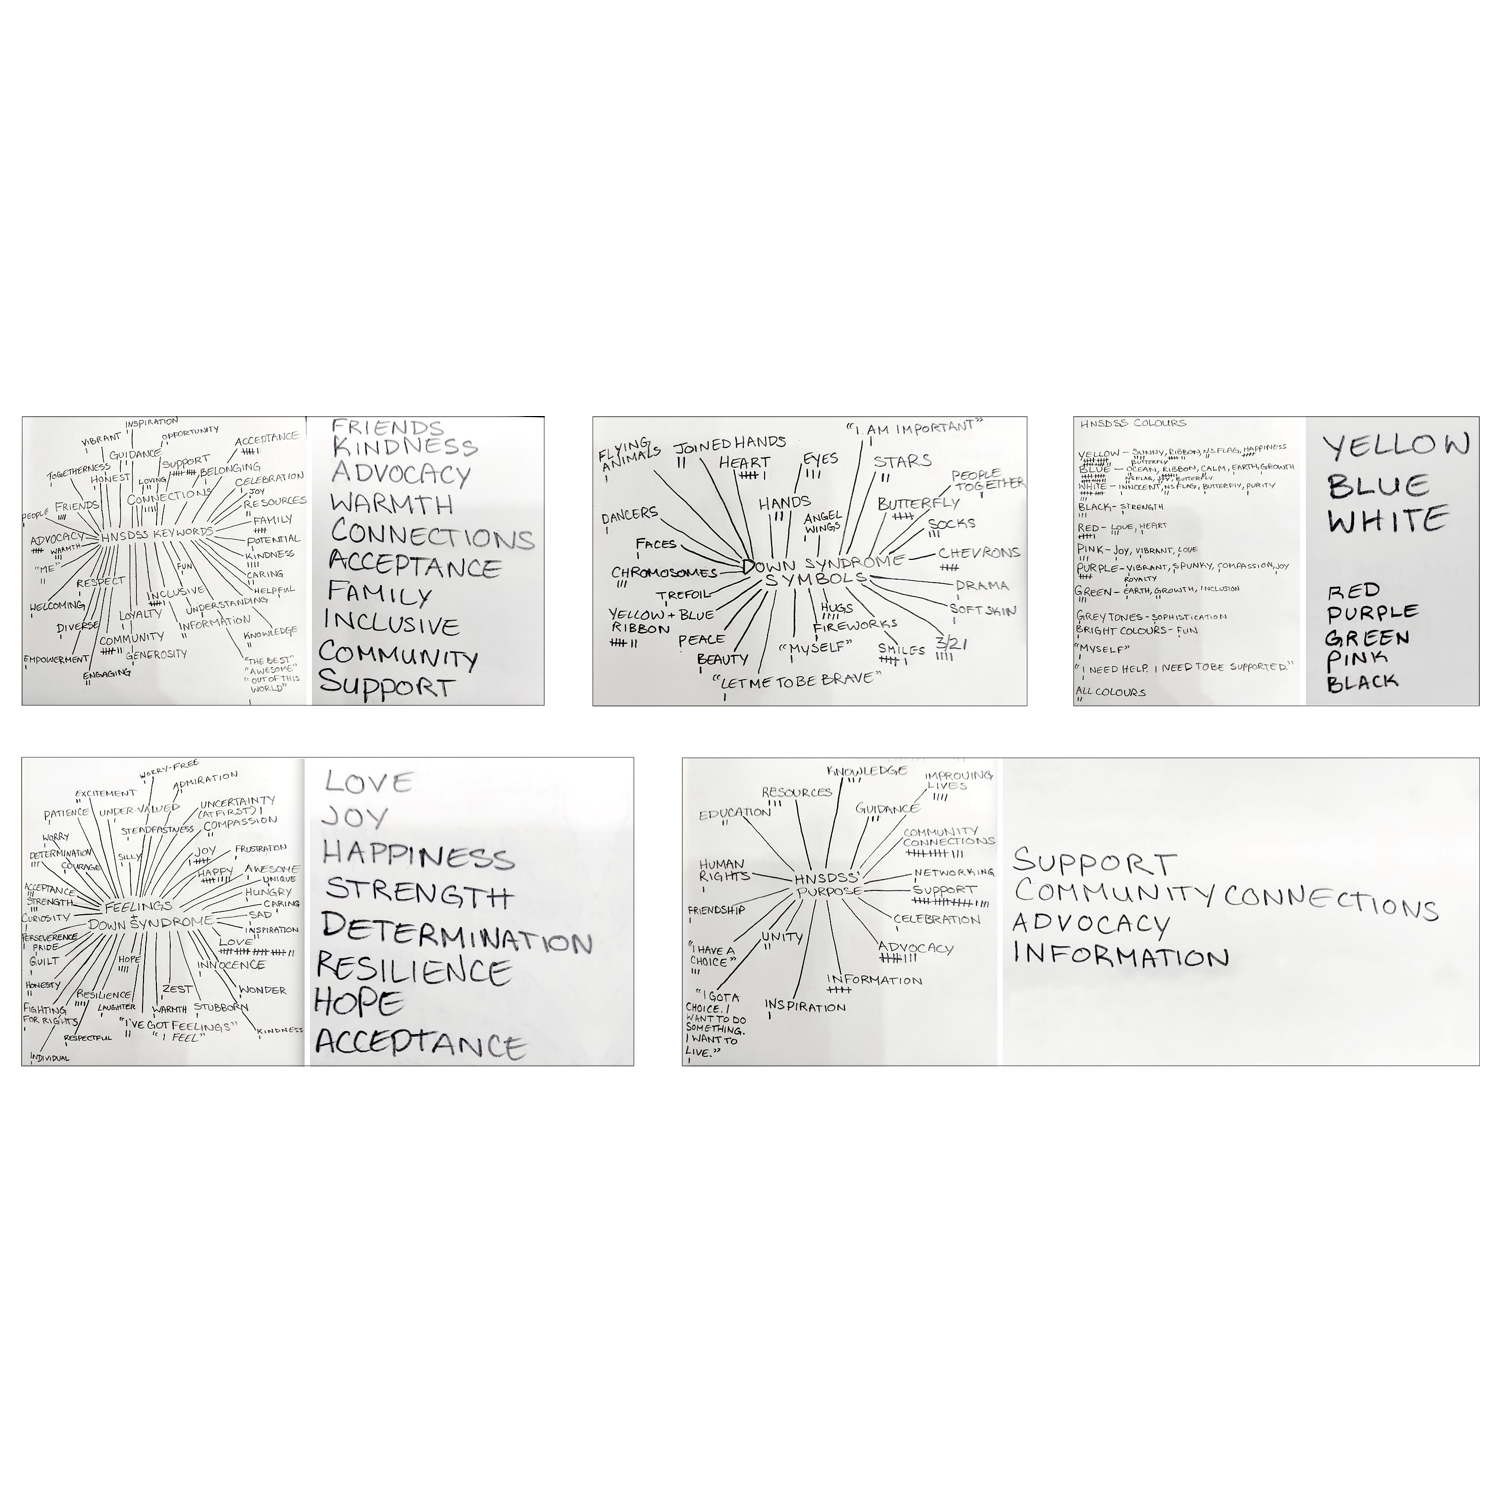 INSPIRATION
VIBRANT
OPPORTUNITY
ACCEPTANCE
GUIDANCE
SUPPORT
BELONGING
TOGETHERNESS
HONEST
LOVING
CELEBRATION
CONNECTIONS
JOY
RESOURCES
PEOPLE
FRIENDS
FAMILY
ADVOCACY
HNSDSS KEYWORDS
POTENTIAL
WARMTH
KINDNESS
"ME"
FUN
CARING
RESPECT
INCLUSIVE
HELPFUL
WELCOMING
LOYALTY
UNDERSTANDING
DIVERSE
INFORMATION
COMMUNITY
KNOWLEDGE
EMPOWERMENT
GENEROSITY
ENGAGING
"THE BEST"
"AWESOME"
"OUT OF THIS
WORLD"
FRIENDS
KINDNESS
ADVOCACY
WARMTH
CONNECTIONS
ACCEPTANCE
FAMILY
INCLUSIVE
COMMUNITY
SUPPORT
FLYING
ANIMALS
JOINED HANDS
"I AM IMPORTANT"
HEART
EYES
STARS
PEOPLE
TOGETHER
HANDS
BUTTERFLY
DANCERS
ANGEL
WINGS
SOCKS
FACES
CHEVRONS
DOWN SYNDROME
SYMBOLS
CHROMOSOMES
DRAMA
TREFOIL
HUGS
SOFT SKIN
YELLOW + BLUE
RIBBON
FIREWORKS
PEACE
"MYSELF"
SMILES
3/21
BEAUTY
"LET ME TO BE BRAVE"
HNSDSS COLOURS
YELLOW - SUNNY, RIBBON, NS FLAG, HAPPINESS
BUTTERFLY
BLUE - OCEAN, RIBBON, CALM, EARTH, GROWTH
NS FLAG, JOY, BUTTERFLY
WHITE - INNOCENT, NS FLAG, BUTTERFLY, PURITY
BLACK - STRENGTH
RED - LOVE, HEART
PINK - JOY, VIBRANT, LOVE
PURPLE - VIBRANT, SPUNKY, COMPASSION, JOY
ROYALTY
GREEN - EARTH, GROWTH, INCLUSION
GREY TONES - SOPHISTICATION
BRIGHT COLOURS - FUN
"MYSELF"
"I NEED HELP. I NEED TO BE SUPPORTED."
ALL COLOURS
YELLOW
BLUE
WHITE
RED
PURPLE
GREEN
PINK
BLACK
WORRY-FREE
ADMIRATION
EXCITEMENT
PATIENCE
UNDER-VALUED
UNCERTAINTY
(AT FIRST)
STEADFASTNESS
COMPASSION
WORRY
DETERMINATION
SILLY
JOY
FRUSTRATION
COURAGE
HAPPY
AWESOME
UNIQUE
ACCEPTANCE
HUNGRY
STRENGTH
CARING
CURIOSITY
FEELINGS
+
DOWN SYNDROME
SAD
INSPIRATION
PERSEVERENCE
PRIDE
LOVE
GUILT
HOPE
INNOCENCE
HONESTY
RESILIENCE
ZEST
WONDER
FIGHTING
FOR RIGHTS
LAUGHTER
WARMTH
STUBBORN
"I'VE GOT FEELINGS"
"I FEEL"
KINDNESS
RESPECTFUL
INDIVIDUAL
LOVE
JOY
HAPPINESS
STRENGTH
DETERMINATION
RESILIENCE
HOPE
ACCEPTANCE
KNOWLEDGE
IMPROVING
LIVES
RESOURCES
EDUCATION
GUIDANCE
COMMUNITY
CONNECTIONS
HUMAN
RIGHTS
HNSDSS'
PURPOSE
NETWORKING
SUPPORT
FRIENDSHIP
CELEBRATION
UNITY
ADVOCACY
"I HAVE A
CHOICE"
INFORMATION
"I GOT A
CHOICE. I
WANT TO DO
SOMETHING.
I WANT TO
LIVE."
INSPIRATION
SUPPORT
COMMUNITY CONNECTIONS
ADVOCACY
INFORMATION